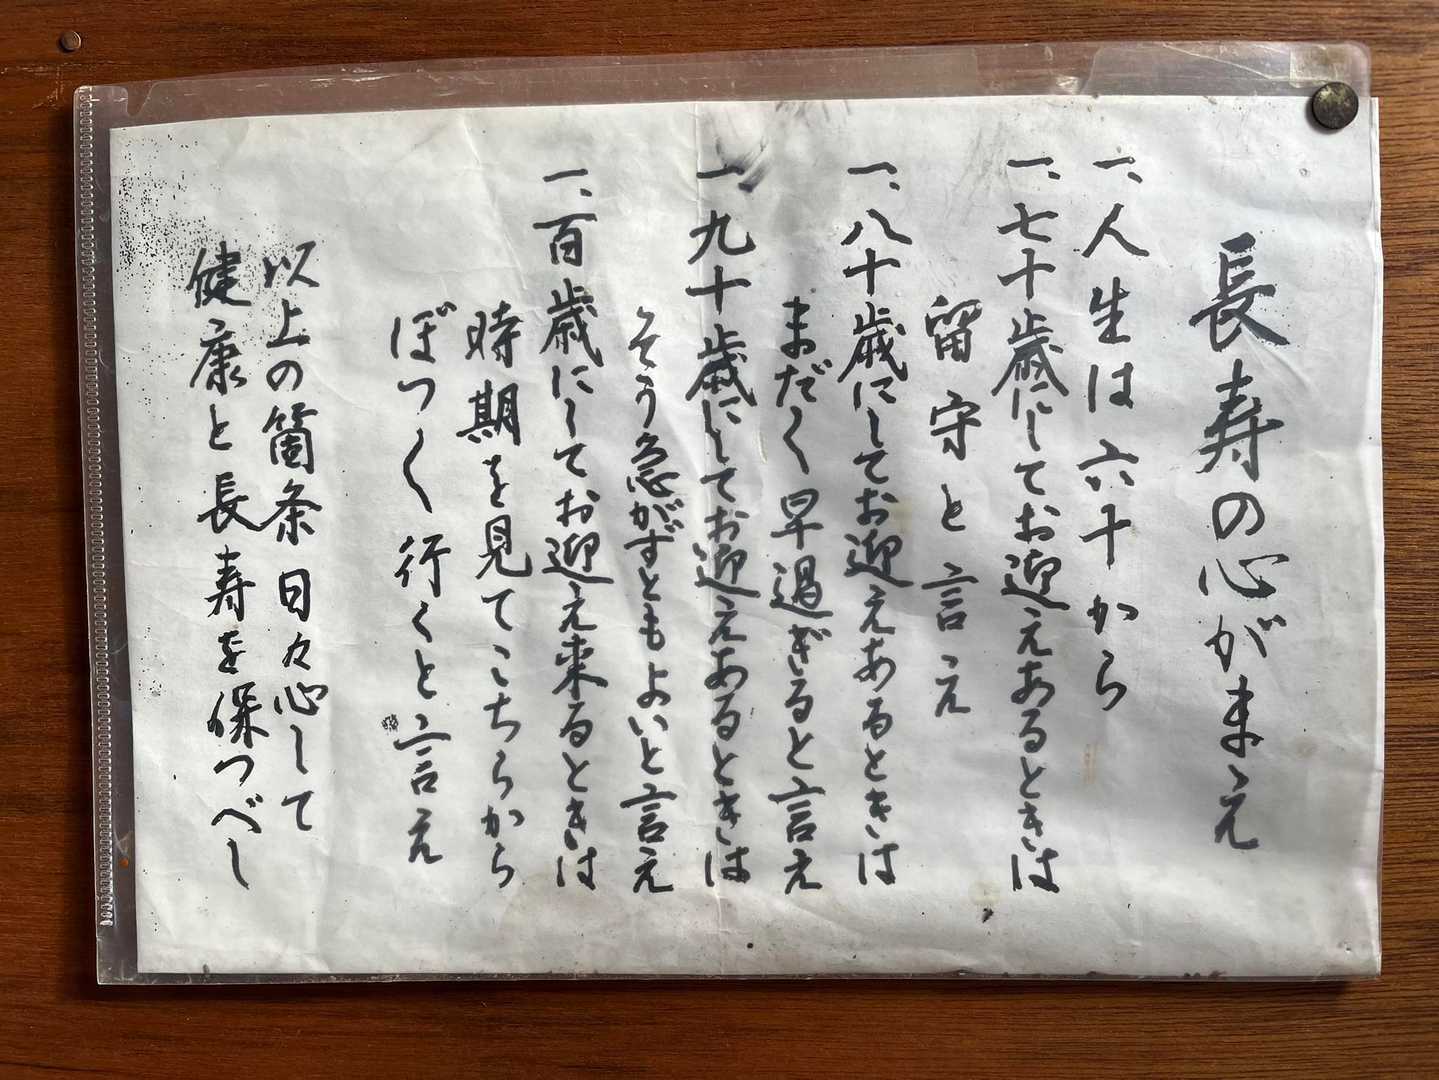 長寿の心がまゝえ
一、人生は六十から
一、七十歳にしてお迎えあるときは
留守と言え
一、八十歳にしてお迎えあるときは
まだ〱早過ぎると言え
一、九十歳にしてお迎えあるときは
そう急がずともよいと言え
一、百歳にしてお迎え来るときは
時期を見てこちらから
ぼつ〱行くと言え
以上の箇条日々心して
健康と長寿を保つべし